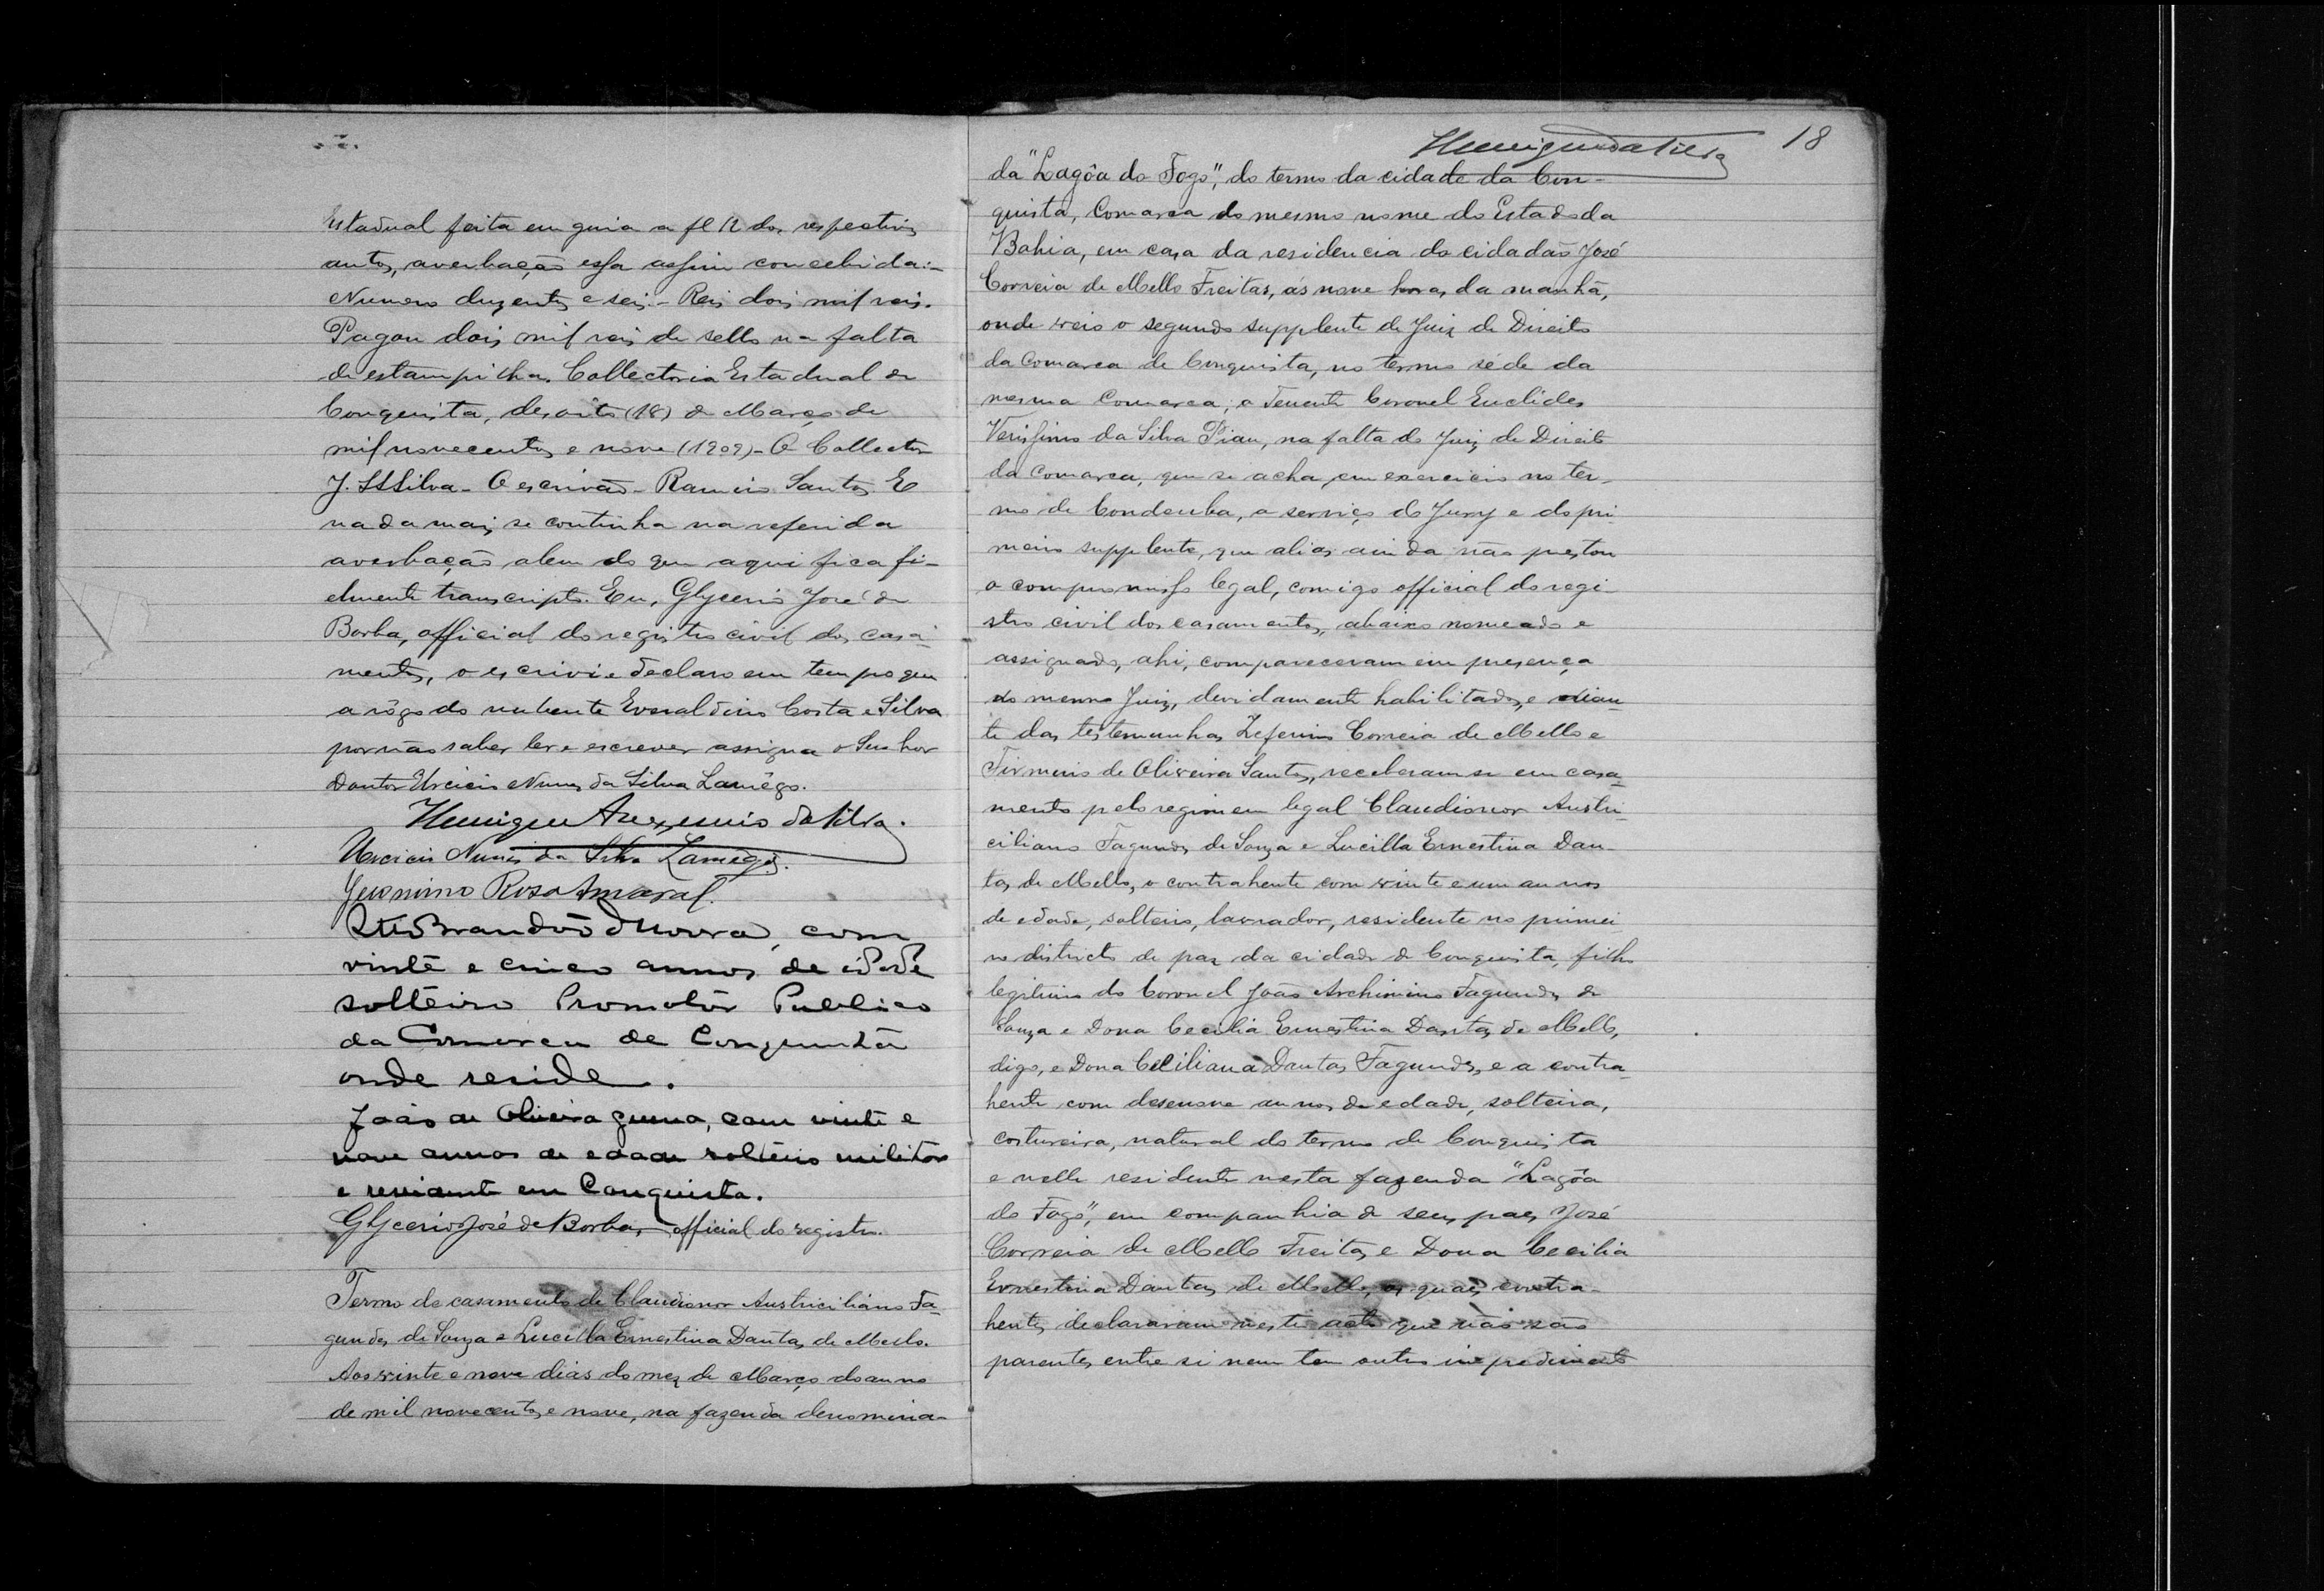 Estadual feita em guia a fl 12 dos respectivos
autos, averbação essa assim concebida:-
Numero duzentos e seis.- Reis dois mil reis.
Pagou dois mil reis de sello na falta
de estampilha. Collectoria Estadual de
Conquista, desoito (18) de Março de
mil novecentos e nove (1909)- O Collector
J. Silva- O escrivão- Ramiro Santos. E
nada mais se continha na referida
averbação alem do que aqui fica fi-
elmente transcripto. Eu, Glycerio José de
Borba, official do registro civil dos casa-
mentos, o escrivi e declaro em tempo que
a rôgo do nubente Everaldino Costa e Silva
por não saber ler e escrever assigna o Senhor
Doutor Urcicio Nunes da Silva Lamêgo.
Henrique da Silva.
Urcicio Nunes da Silva Lamêgo.
Jeronimo Rosa Amaral.
Brandão, com
vinte e cinco annos de idade
solteiro Promotor Publico
da Comarca de Conquista
onde reside.
João de Oliveira, com vinte e
nove annos de edade solteiro militar
e residente em Conquista.
Glycerio José de Borba, official do registro.
Termo de casamento de Claudionor Austriciliano Fa-
gundes de Souza e Lucilla Ernestina Dantas de Mello.
Aos vinte e nove dias do mez de Março do anno
de mil novecentos e nove, na fazenda denomina-
18
da "Lagôa do Fogo", do termo da cidade da Con-
quista, Comarca do mesmo nome do Estado da
Bahia, em casa da residencia do cidadão José
Correia de Mello Freitas, ás nove horas da manhã,
onde veio o segundo supplente de Juiz de Direito
da Comarca de Conquista, no termo séde da
mesma Comarca, o Tenente Coronel Euclides
Verissimo da Silva Piau, na falta do Juiz de Direito
da Comarca, que se acha em exercicio no ter-
mo de Condeuba, a serviço do Jury e do pri-
meiro supplente, que alias ainda não prestou
o compromisso legal, comigo official do regi-
stro civil dos casamentos, abaixo nomeado e
assignado, ahi, compareceram em presença
do mesmo Juiz, devidamente habilitados, e dian-
te das testemunhas Zeferino Correia de Mello e
Firmino de Oliveira Santos, receberam-se em casa-
mento pelo regimen legal Claudionor Austri-
ciliano Fagundes de Souza e Lucilla Ernestina Dan-
tas de Mello, o contrahente com vinte e um annos
de edade, solteiro, lavrador, residente no primei
ro districto de paz da cidade de Conquista, filho
legitimo do Coronel João Archimino Fagundes de
Souza e Dona Cecilia Ernestina Dantas de Mello,
digo, e Dona Ceciliana Dantas Fagundes, e a contra-
hente com desenove annos de edade, solteira,
costureira, natural do termo de Conquista
e nelle residente nesta fazenda "Lagôa
do Fogo", em companhia de seus paes José
Correia de Mello Freitas e Dona Cecilia
Ernestina Dantas de Mello, os quaes contra-
hentes declararam neste acto que não são
parentes entre si nem tem outro impedimento